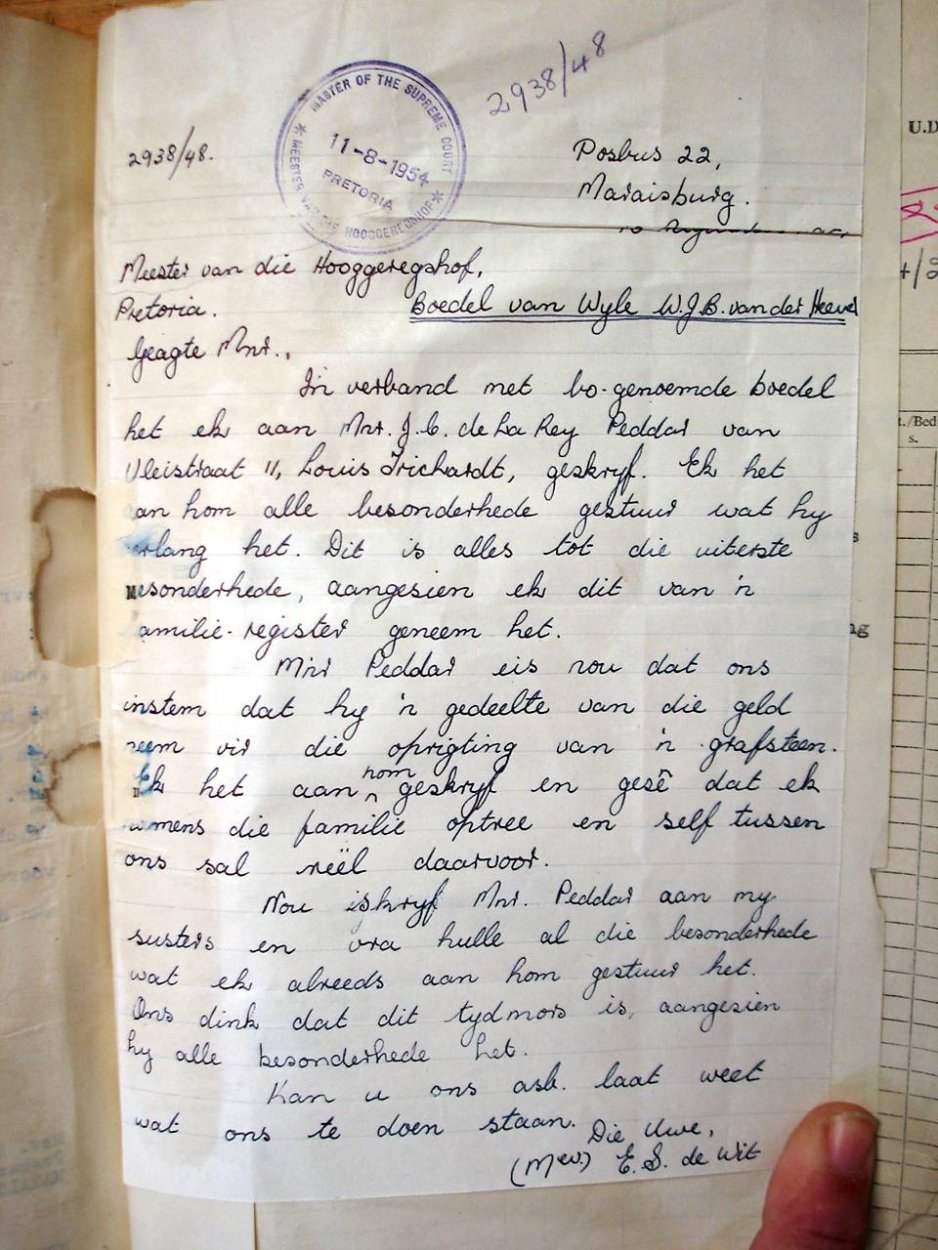 2938/48
2938/48.
MASTER OF THE SUPREME COURT
11-8-1954
PRETORIA
MEESTER VAN DIE HOOGGEREGSHOF
Posbus 22,
Maraisburg.
Meester van die Hooggeregshof,
Pretoria.
Boedel van Wyle W.J.B. van der Heever
Geagte Mnr.,
In verband met bo-genoemde boedel
het ek aan Mnr. J.C. de La Rey Peddar van
Vleistraat 11, Louis Trichardt, geskryf. Ek het
aan hom alle besonderhede gestuur wat hy
verlang het. Dit is alles tot die uiterste
besonderhede, aangesien ek dit van 'n
familie-register geneem het.
Mnr Peddar eis nou dat ons
instem dat hy 'n gedeelte van die geld
neem vir die oprigting van 'n grafsteen.
Ek het aan hom geskryf en gesê dat ek
namens die familie optree en self tussen
ons sal reël daarvoor.
Nou skryf Mnr. Peddar aan my
susters en vra hulle al die besonderhede
wat ek alreeds aan hom gestuur het.
Ons dink dat dit tydmors is, aangesien
hy alle besonderhede het.
Kan u ons asb. laat weet
wat ons te doen staan.
Die Uwe,
(Mev.) E. S. de Wit
U.D
t./Bed
s.